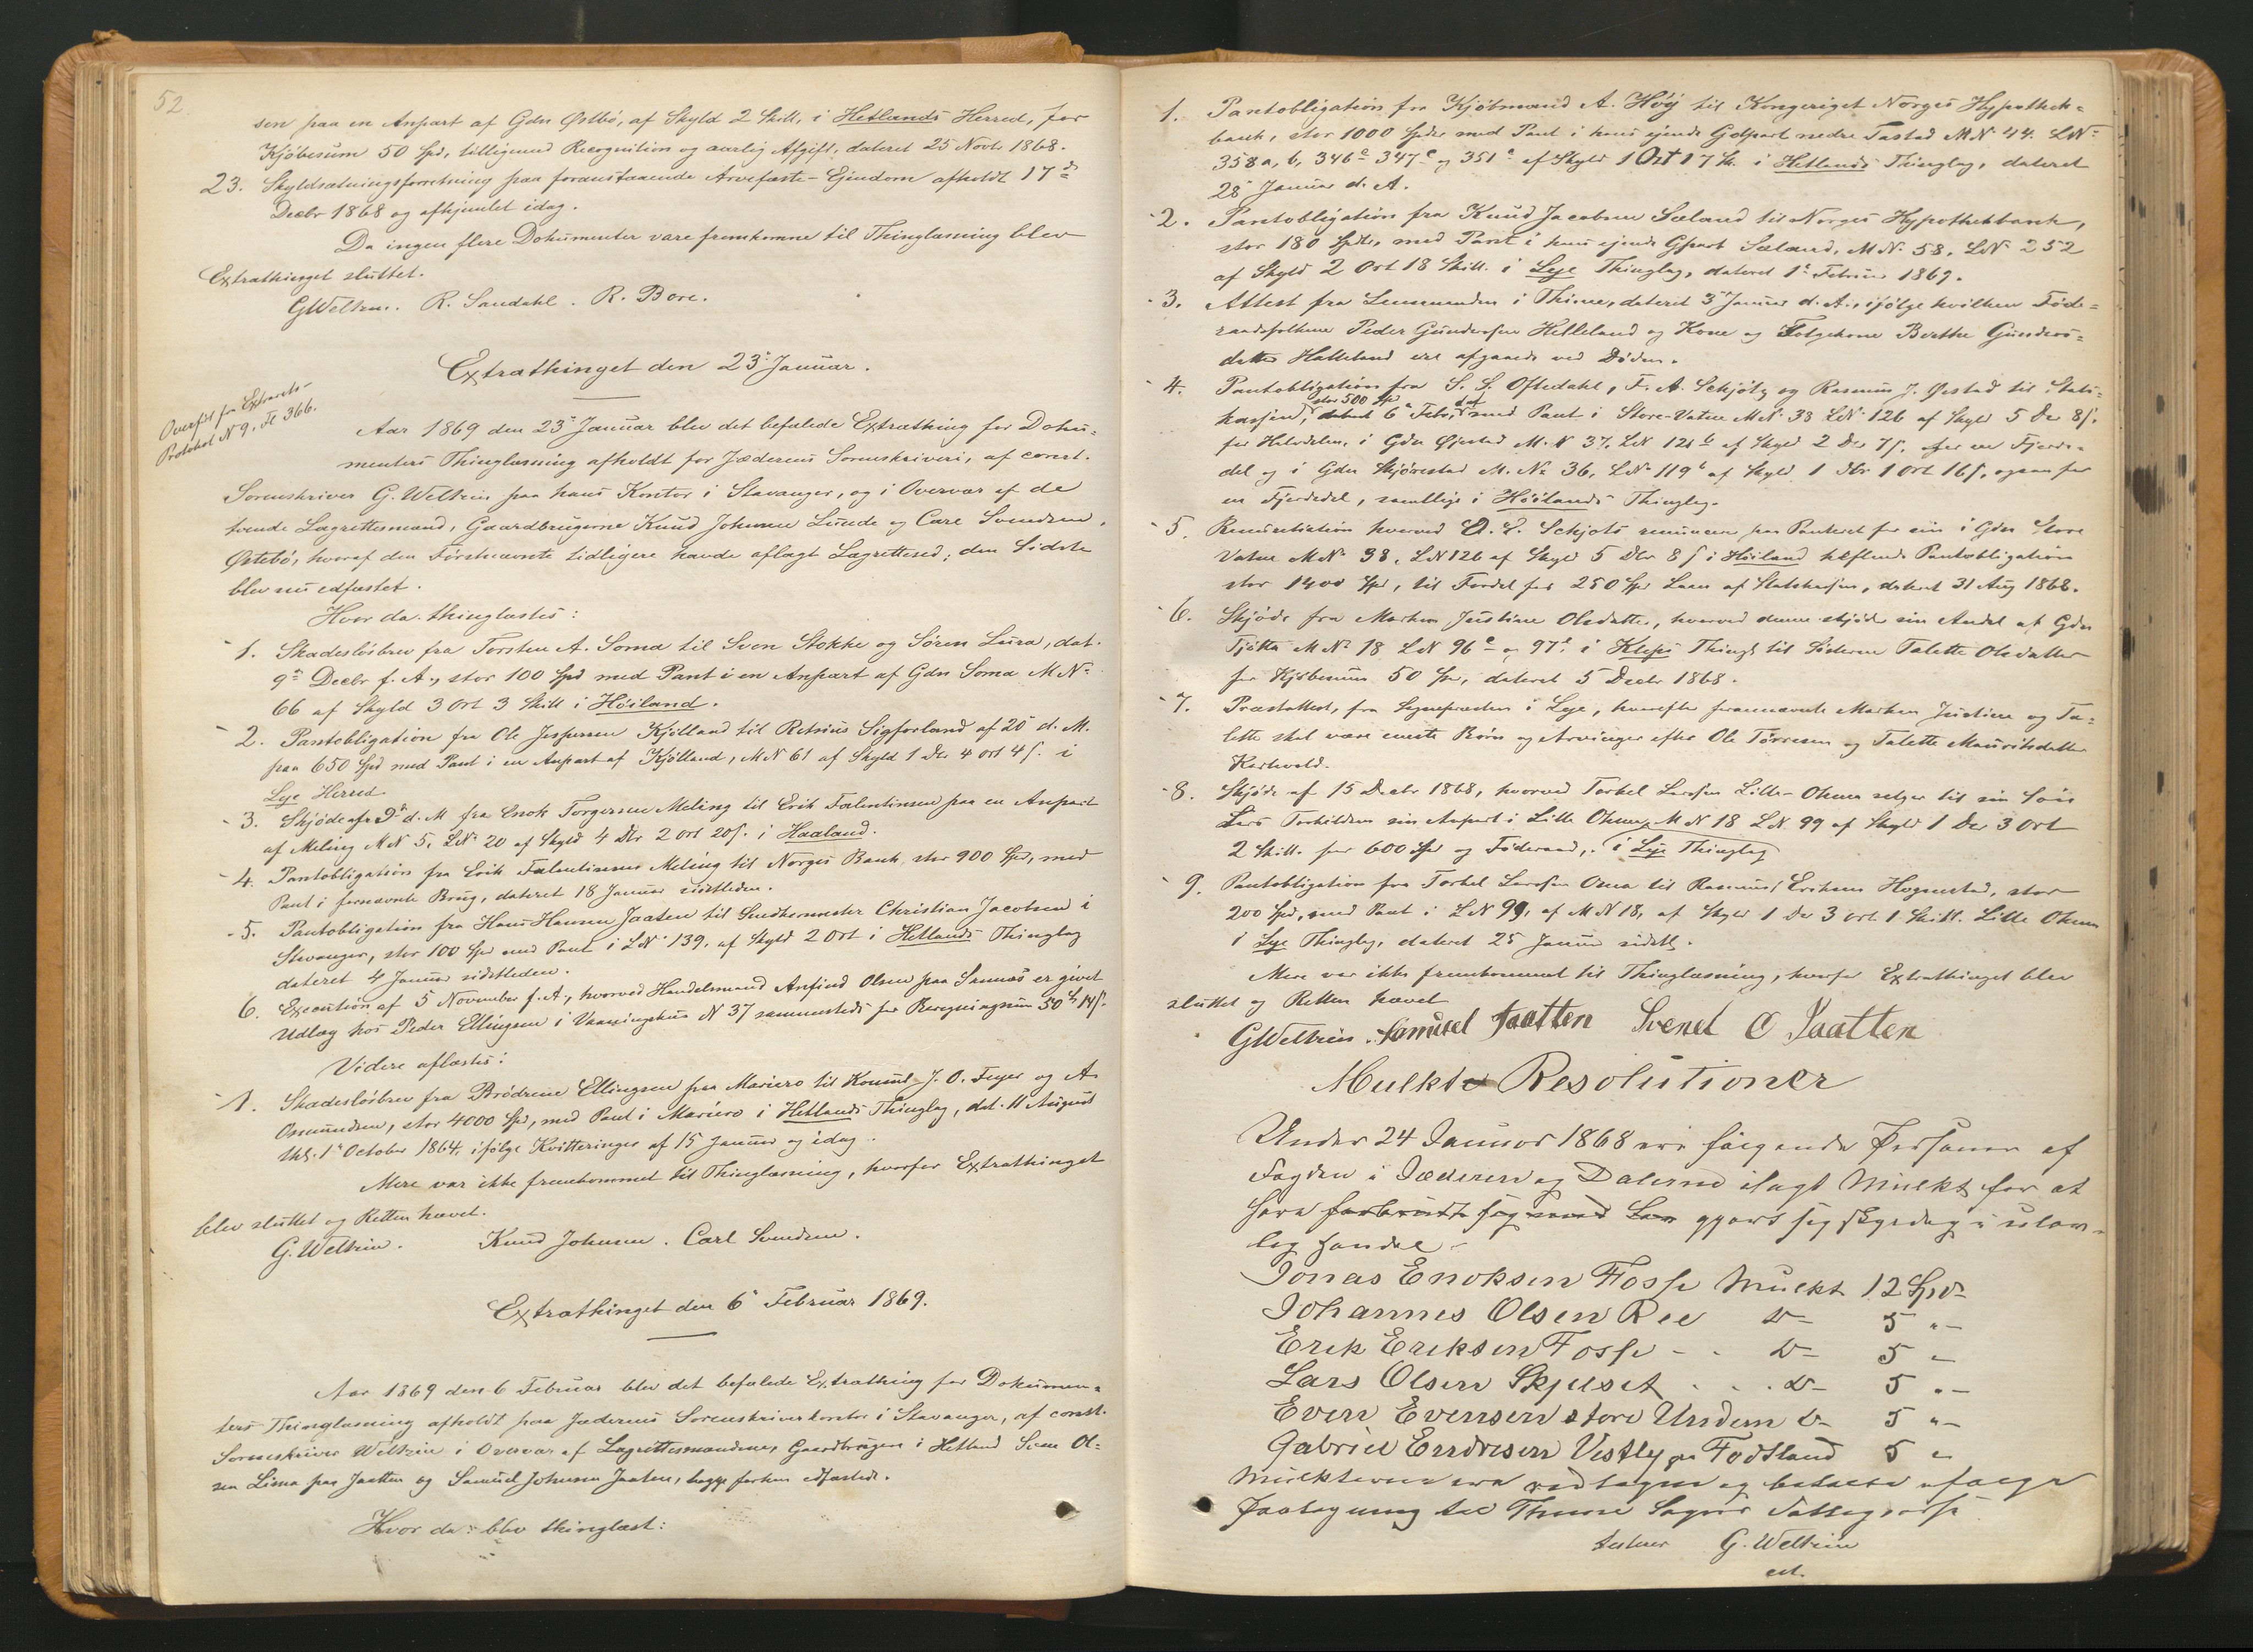 52
sen paa en Anpart af Gdn Østbö, af Skyld 2 Skill, i Hetlands Herred, for
Kjöbesum 50 Spd, tilligemed Recognition og aarlig Afgift, dateret 25 Novbr 1868.
23. Skyldsætningsforretning paa foranstaaende Arvefæste-Eiendom afholdt 17de
Decbr 1868 og afhjemlet idag.
Da ingen flere Dokumenter vare fremkomne til Thinglæsning blev
Extrathinget sluttet.
GWeltzin. R. Sandahl. R. Bore.
Extrathinget den 23de Januar.
Overført fra Extrarets-
Protokol N 9, Fl 366.
Aar 1869 den 23de Januar blev det befalede Extrathing for Doku-
menters Thinglæsning afholdt for Jæderens Sorenskriveri, af const.
Sorenskriver G. Weltzin paa hans Kontor i Stavanger, og i Overvær af de
tvende Lagrettesmænd, Gaardbrugerne Knud Johnsen Lunde og Carl Svendsen
Østebö, hvoraf den Förstnævnte tidligere havde aflagt Lagretteed; den Sidste
blev nu edfæstet.
Hvor da thinglæstes:
1. Skadeslösbrev fra Torsten A. Soma til Sven Stokke og Sören Lura, dat.
9de Decbr f. A., stor 100 Spd med Pant i en Anpart af Gdn Soma M N:
66 af Skyld 3 Ort 3 Skill i Höiland.
2. Pantobligation fra Ole Jespersen Kjölland til Retsius Sigforland af 20de d. M.
paa 650 Spd med Pant i en Anpart af Kjölland, M N 61 af Skyld 1 Dlr 4 ort 4 s. i
Lye Herred.
3. Skjöde af 9de d. M fra Enok Torgersen Meling til Erik Falentinsen paa en Anpart
af Meling M N 5, L N 20 af Skyld 4 Dlr 2 ort 20 s. i Haaland.
4. Pantobligation fra Erik Falentinsen Meling til Norges Bank, stor 900 Spd, med
Pant i fornævnte Brug, dateret 18 Januar sidstleden.
5. Pantobligation fra Hans Hansen Jaaten til Smedkemester Christian Jacobsen i
Stavanger, stor 100 Spd med Pant i L N: 139, af Skyld 2 Ort i Hetlands Thinglag
dateret 4 Januar sidstleden.
6. Execution af 5 November f. A., hvorved Handelsmand Anfind Olsen paa Sannæs er givet
Udlæg hos Peder Ellingsen i Vaaningshus N 37 sammesteds for Beregningssum 50 14 s.
Videre aflæstes:
1. Skadeslösbrev fra Brödrene Ellingsen paa Mariero til Konsul J. O. Feyer og A.
Osmundsen, stor 4000 Spd, med Pant i Mariero i Hetlands Thinglag, dat. 11 August
thl. 1ste October 1864, ifölge Kvitteringer af 15 Januar og idag.
Mere var ikke fremkommet til Thinglæsning, hvorfor Extrathinget
blev sluttet og Retten hævet.
G. Weltzin. Knud Johnsen. Carl Svendsen.
Extrathinget den 6te Februar 1869.
Aar 1869 den 6 Februar blev det befalede Extrathing for Dokumen-
ters Thinglæsning afholdt paa Jæderens Sorenskriverkontor i Stavanger, af const.
Sorenskriver Weltzin i Overvær af Lagrettesmændene, Gaardbruger i Hetland Svend Ol-
sen Lima paa Jaatten og Samuel Johnsen Jaaten, begge forhen edfæstede.
Hvor da blev thinglæst:
1. Pantobligation fra Kjöbmand A. Höy til Kongeriget Norges Hypothek-
bank, stor 1000 Spdr med Pant i hans eiende Gdpart nedre Tastad M N 44. L N:
358 a, b, 346 c 347 c og 351 a af Skyld 1 Ort 17 Sk. i Hetlands Thinglag, dateret
28de Januar d. A.
2. Pantobligation fra Knud Jacobsen Sæland til Norges Hypothekbank,
stor 180 Spdr, med Pant i hans ejende Gpart Sæland, M N 58, L N 252
af Skyld 2 Ort 18 Skill. i Lye Thinglag, dateret 1ste Februar 1869.
3. Attest fra Lensmanden i Thime, dateret 3de Januar d. A., ifölge hvilken Föde-
raadsfolkene Peder Gundersen Helleland og Kone og Folgekone Berthe Gunders-
datter Helleland ere afgaaede ved Döden.
4. Pantobligation fra S. S. Oftedahl, F. A. Schjötz og Rasmus J. Østad til Stats-
kassen, stor 500 Spd dat 6te Febr, med Pant i Store-Vatne M N 38 L N 126 af Skyld 5 Dlr 8 s.
for Halvdelen, i Gdn Øjestad M. N 37, L N 121 b af Skyld 2 Dlr 7 s. for en Fjerde-
del og i Gdn Skjörestad M. N: 36, L N 119 b af Skyld 1 Dlr 1 Ort 16 s. ogsaa for
en Fjerdedel, samtlige i Höilands Thinglag.
5. Renunciation hvorved O. L. Schjöts renuncerer paa Panteret for sin i Gdn Store
Vatne M N 38, L N 126 af Skyld 5 Dlr 8 s i Höiland hæftende Pantobligation
stor 1400 Spd, til Fordel for 250 Spd Laan af Statskassen, dateret 31 Aug 1868.
6. Skjöde fra Marken Justine Olsdatter, hvorved denne skjöder sin Andel af Gdn
Tjötta M N: 18 L N 96 a og 97 i Kleps Thingl til Söderen Talette Olsdatter
for Kjöbesum 50 Spd, dateret 5 Decbr 1868.
7. Præstattest, fra Sognepræsten i Lye, hvorefter forannævnte Marken Justine og Ta-
lette skal være eneste Börn og Arvinger efter Ole Törresen og Talette Mauritsdatter
8. Skjöde af 15 Decbr 1868, hvorved Torkel Larssen Lille-Ohma selger til sin Sön
Lars Torkildsen sin Anpart i Lille Ohma, M N 18 L N 99 af Skyld 1 Dlr 3 Ort
2 Skill. for 600 Spd og Föderaad, i Lye Thinglag
9. Pantobligation fra Torkel Larssen Oma til Rasmus Eriksen Hognestad, stor
200 Spd, med Pant i L N 99, af M N 18, af Skyld 1 Dlr 3 ort 1 Skill. Lille Ohma
i Lye Thinglag, dateret 25 Januar sidstl.
Mere var ikke fremkommet til Thinglæsning, hvorfor Extrathinget blev
sluttet og Retten hævet
GWeltzin. Samuel Jaatten Svend O Jaatten
Mulkte Resolutioner
Under 24 Januar 1868 ere følgende Personer af
Fogden i Jæderen og Dalerne ilagt Mulkt for at
have forbrudt sig mod Lov gjort sig skyldig i ulov-
lig Handel -
Jonas Enoksen Fosse Mulkt 12 Spd
Johannes Olsen Ree do 5 "
Erik Eriksen Fosse - - do 5 "
Lars Olsen Skjelset . . . do 5 "
Even Evensen store Undem do 5 "
Gabriel Endresen Vestly paa Fodtland 5 "
Mulkterne ere vedtagne og betalte ifølge
Paategning til Thime Sogns Fattigcasse
testerer G. Weltzin
cst.